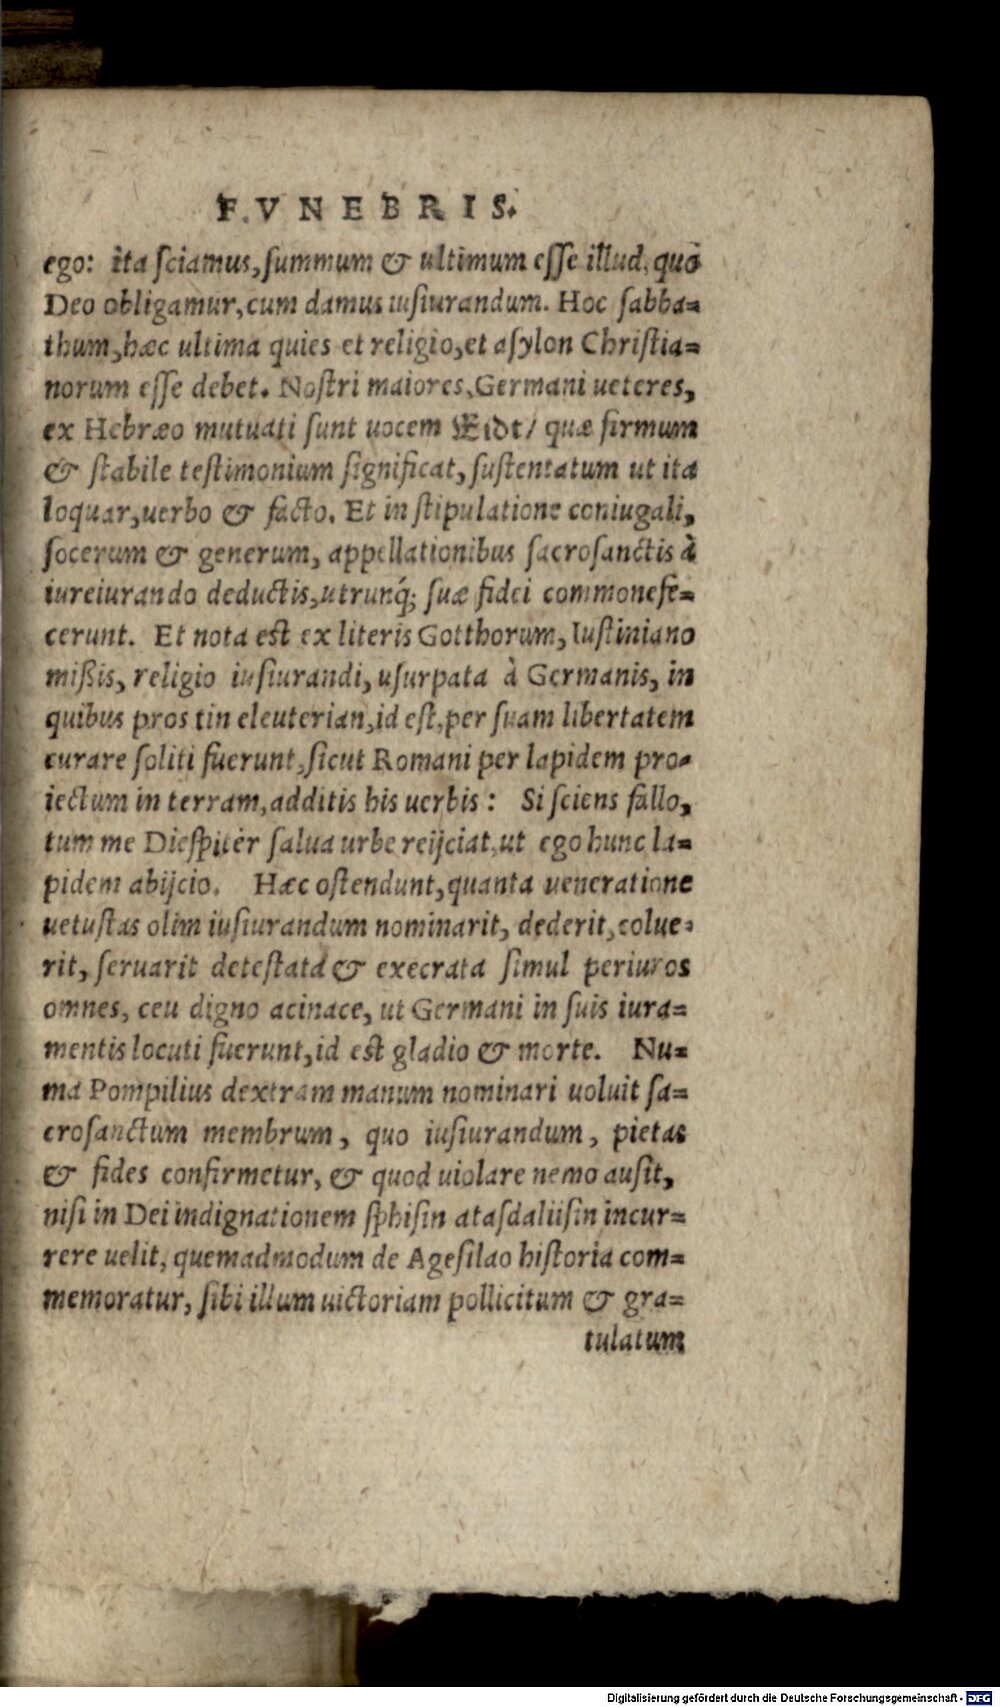 FVNEBRIS.
ego: ita ſciamus, ſummum & ultimum eſſe illud, quo
Deo obligamur, cum damus iuſiurandum. Hoc ſabba=
thum, hæc ultima quies et religio, et aſylon Chriſtia=
norum eſſe debet. Noſtri maiores, Germani ueteres,
ex Hebræo mutuati ſunt uocem Eidt/ quæ firmum
& ſtabile teſtimonium ſignificat, ſuſtentatum ut ita
loquar, uerbo & facto. Et in ſtipulatione coniugali,
ſocerum & generum, appellationibus ſacroſanctis à
iureiurando deductis, utrunq́; ſuæ fidei commonefe=
cerunt. Et nota eſt ex literis Gotthorum, Iuſtiniano
mißis, religio iuſiurandi, uſurpata à Germanis, in
quibus pros tin eleuterian, id eſt, per ſuam libertatem
curare ſoliti fuerunt, ſicut Romani per lapidem pro=
iectum in terram, additis his uerbis: Si ſciens fallo,
tum me Dieſpiter ſalua urbe reijciat, ut ego hunc la=
pidem abijcio. Hæc oſtendunt, quanta ueneratione
uetuſtas olim iuſiurandum nominarit, dederit, colue=
rit, ſeruarit deteſtata & execrata ſimul periuros
omnes, ceu digno acinace, ut Germani in ſuis iura=
mentis locuti fuerunt, id eſt gladio & morte. Nu=
ma Pompilius dextram manum nominari uoluit ſa=
croſanctum membrum, quo iuſiurandum, pietas
& fides confirmetur, & quod uiolare nemo auſit,
niſi in Dei indignationem ſphiſin ataſdaliiſin incur=
rere uelit, quemadmodum de Ageſilao hiſtoria com=
memoratur, ſibi illum uictoriam pollicitum & gra=
tulatum
Digitalisierung gefördert durch die Deutsche Forschungsgemeinschaft - DFG